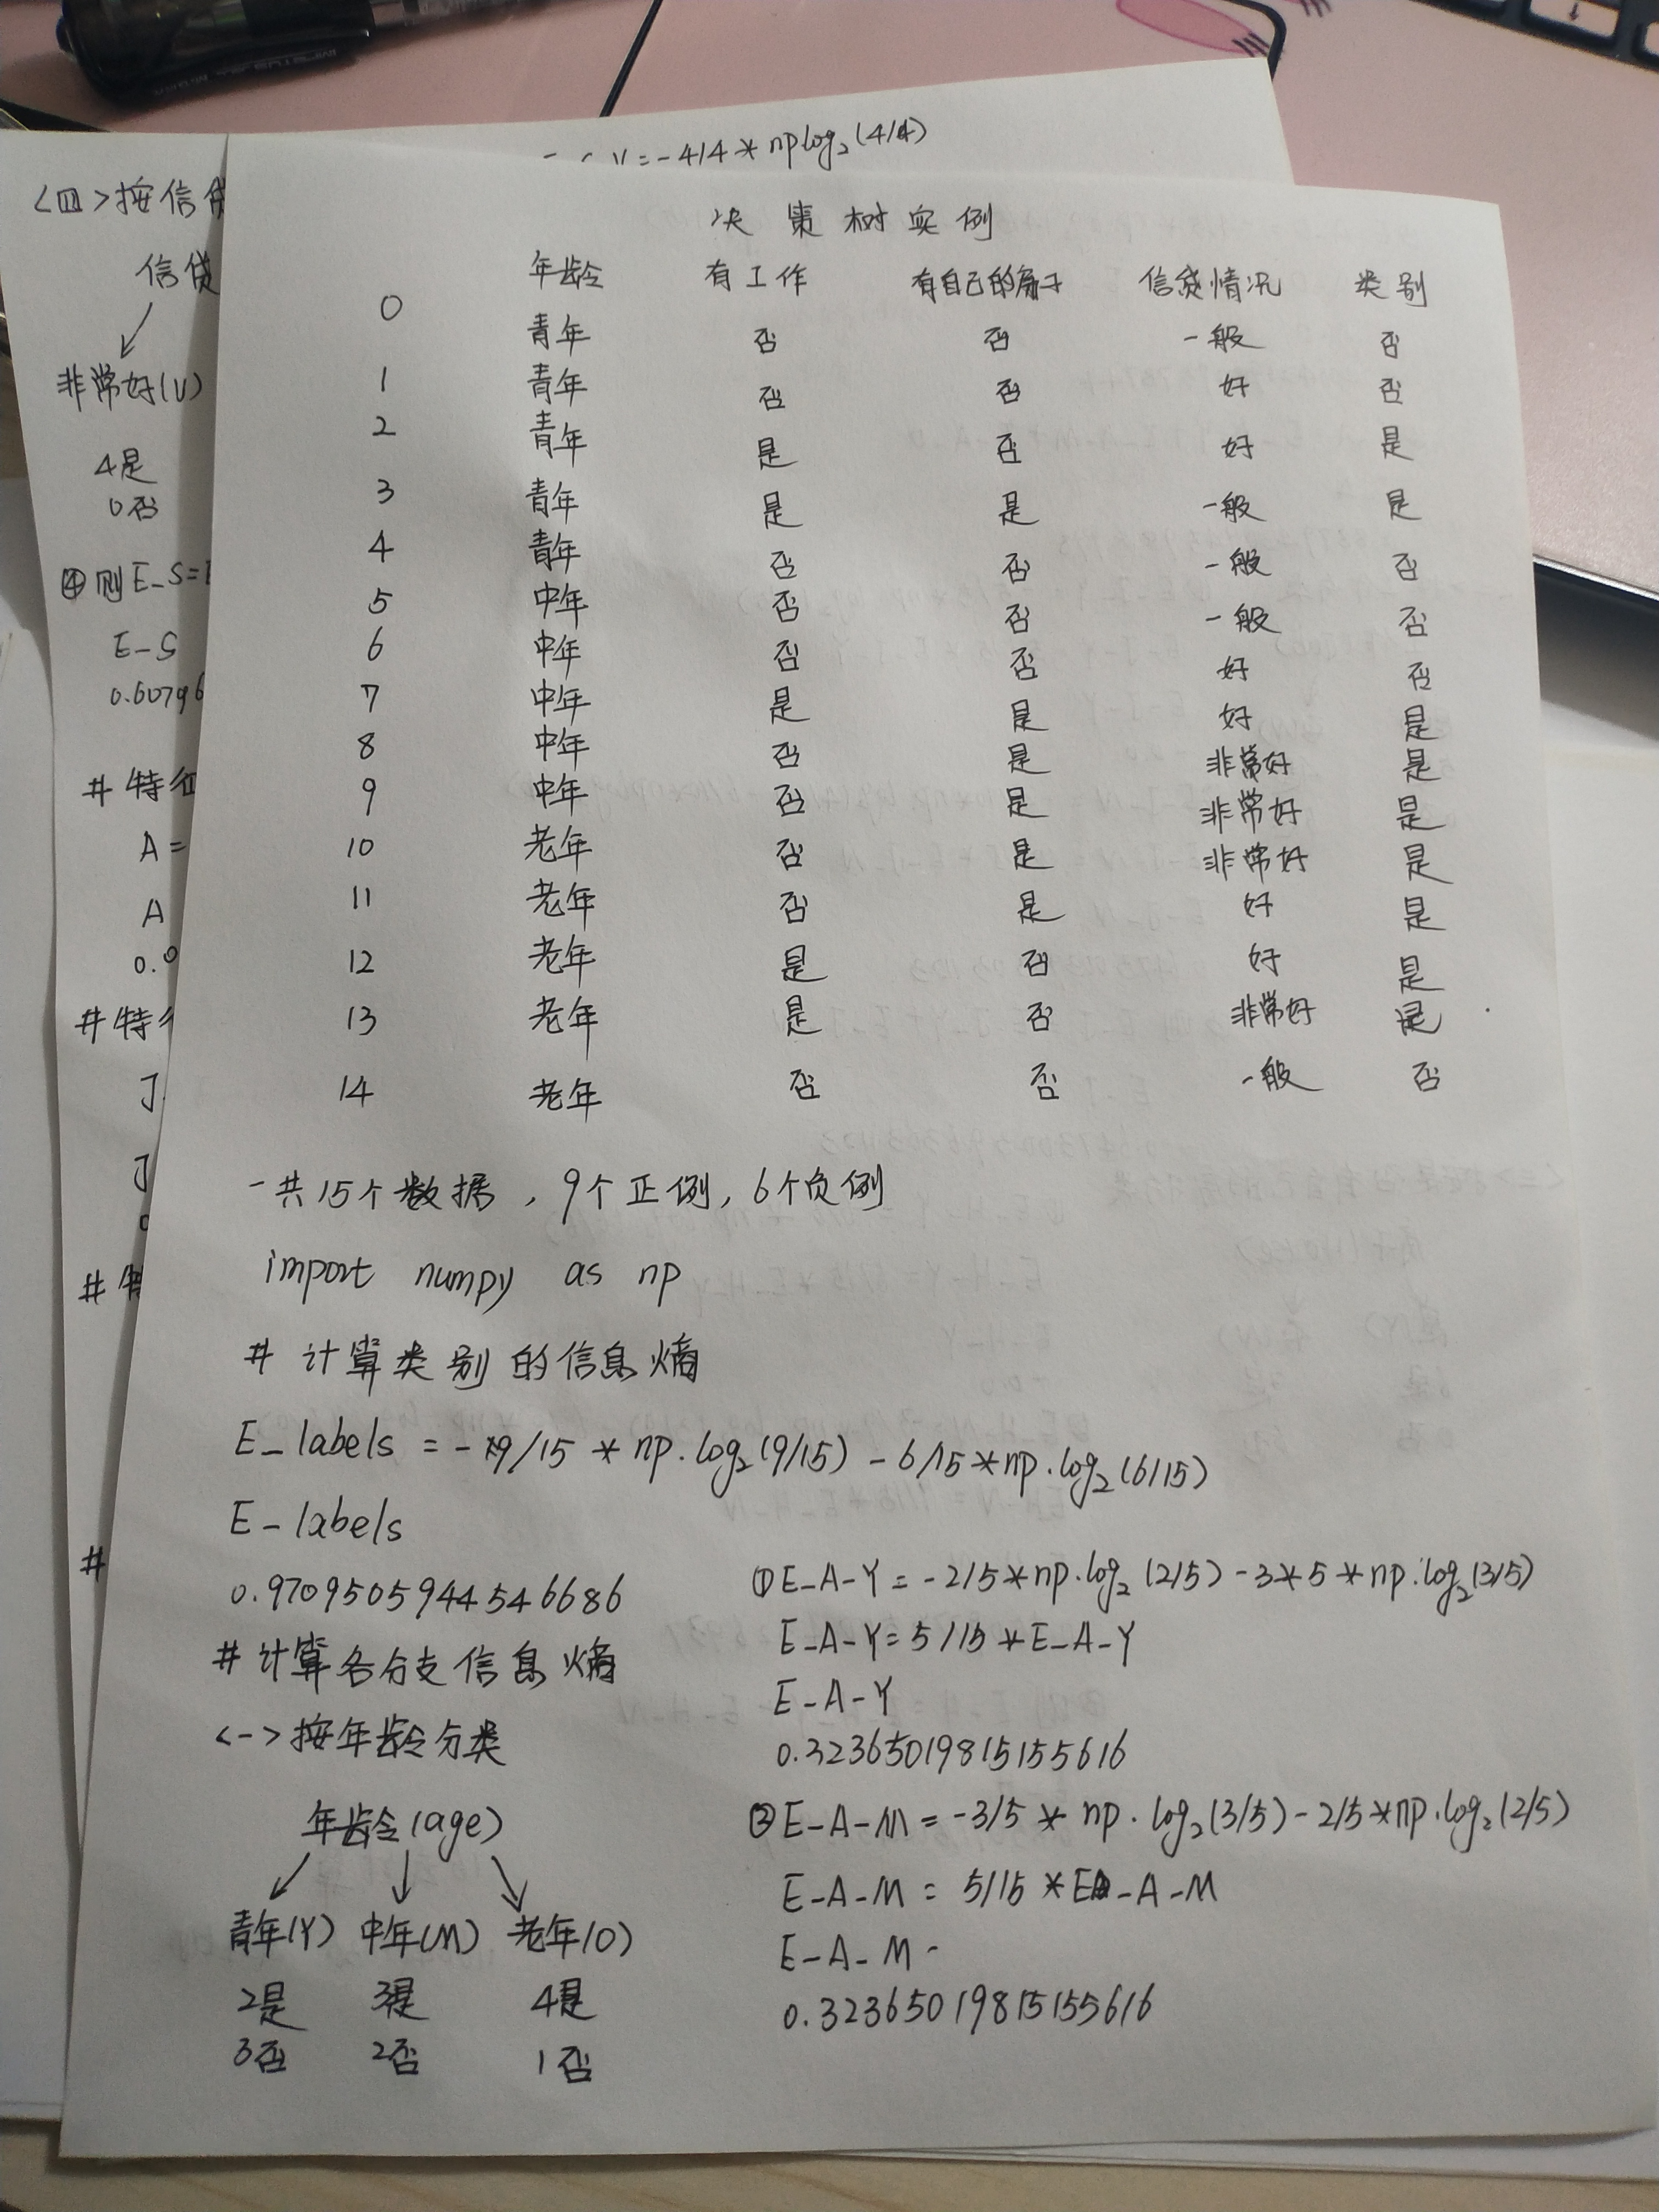 = -4/4 * nplog₂(4/4)
<四>按信贷
信贷
非常好(V)
4是
0否
④则E_S=
E-S
0.60796
#特征
A =
A
0.0
#特
J
J
0
#特
#
决策树实例
年龄 有工作 有自己的房子 信贷情况 类别
0 青年 否 否 一般 否
1 青年 否 否 好 否
2 青年 是 否 好 是
3 青年 是 是 一般 是
4 青年 否 否 一般 否
5 中年 否 否 一般 否
6 中年 否 否 好 否
7 中年 是 是 好 是
8 中年 否 是 非常好 是
9 中年 否 是 非常好 是
10 老年 否 是 非常好 是
11 老年 否 是 好 是
12 老年 是 否 好 是
13 老年 是 否 非常好 是
14 老年 否 否 一般 否
一共15个数据，9个正例，6个负例
import numpy as np
# 计算类别的信息熵
E_labels = -9/15 * np.log₂(9/15) - 6/15*np.log₂(6/15)
E-labels
0.9709505944546686
#计算各分支信息熵
<一>按年龄分类
年龄(age)
青年(Y) 中年(M) 老年(O)
2是 3是 4是
3否 2否 1否
①E_A-Y = -2/5*np.log₂(2/5) -3*5*np.log₂(3/5)
E_A-Y=5/15*E_A-Y
E-A-Y
0.32365019815155616
②E-A-M = -3/5 * np.log₂(3/5)-2/5*np.log₂(2/5)
E-A-M = 5/15 *E-A-M
E-A-M -
0.32365019815155616